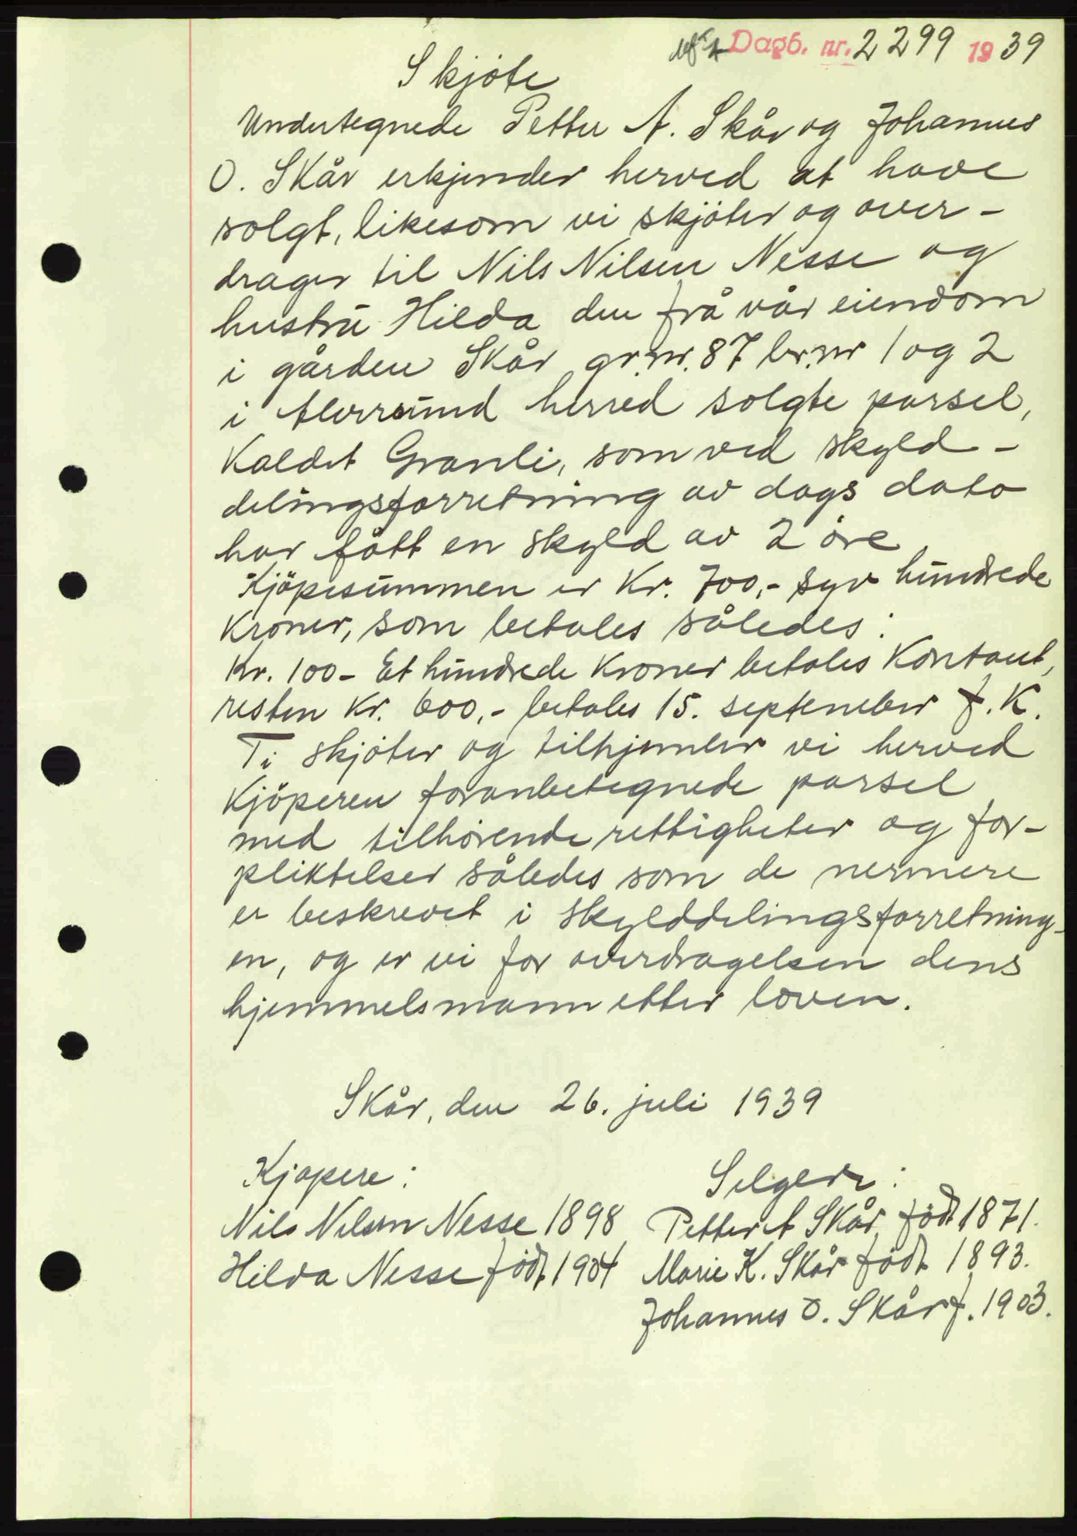 Dagb. nr. 2299 1939
Skjöte
Undertegnede Petter A. Skår og Johannes
O. Skår erkjender herved at have
solgt, likesom vi skjöter og over-
drager til Nils Nilsen Nesse og
hustru Hilda den frå vår eiendom
i gården Skår gr.nr. 87 br.nr 1 og 2
i Alversund herred solgte parsel,
Kaldet Granli, som ved skyld-
delingsforretning av dags dato
har fått en skyld av 2 öre
Kjöpesummen er Kr. 700,- syv hundrede
Kroner, som betales således:
Kr. 100- Et hundrede Kroner betales Kontant,
resten Kr. 600,- betales 15. september f. K.
Ti skjöter og tilhjemler vi herved
Kjöperen foranbetegnede parsel
med tilhörende rettigheter og for-
pliktelser således som de nermere
er beskrevet i skylddelingsforretning-
en, og er vi for overdragelsen dens
hjemmelsmann etter loven.
Skår, den 26. juli 1939
Kjøpere:
Selgere:
Nils Nilsen Nesse 1898
Petter A Skår född 1871.
Hilda Nesse född 1904
Marie K. Skår född 1893.
Johannes O. Skår f. 1903.